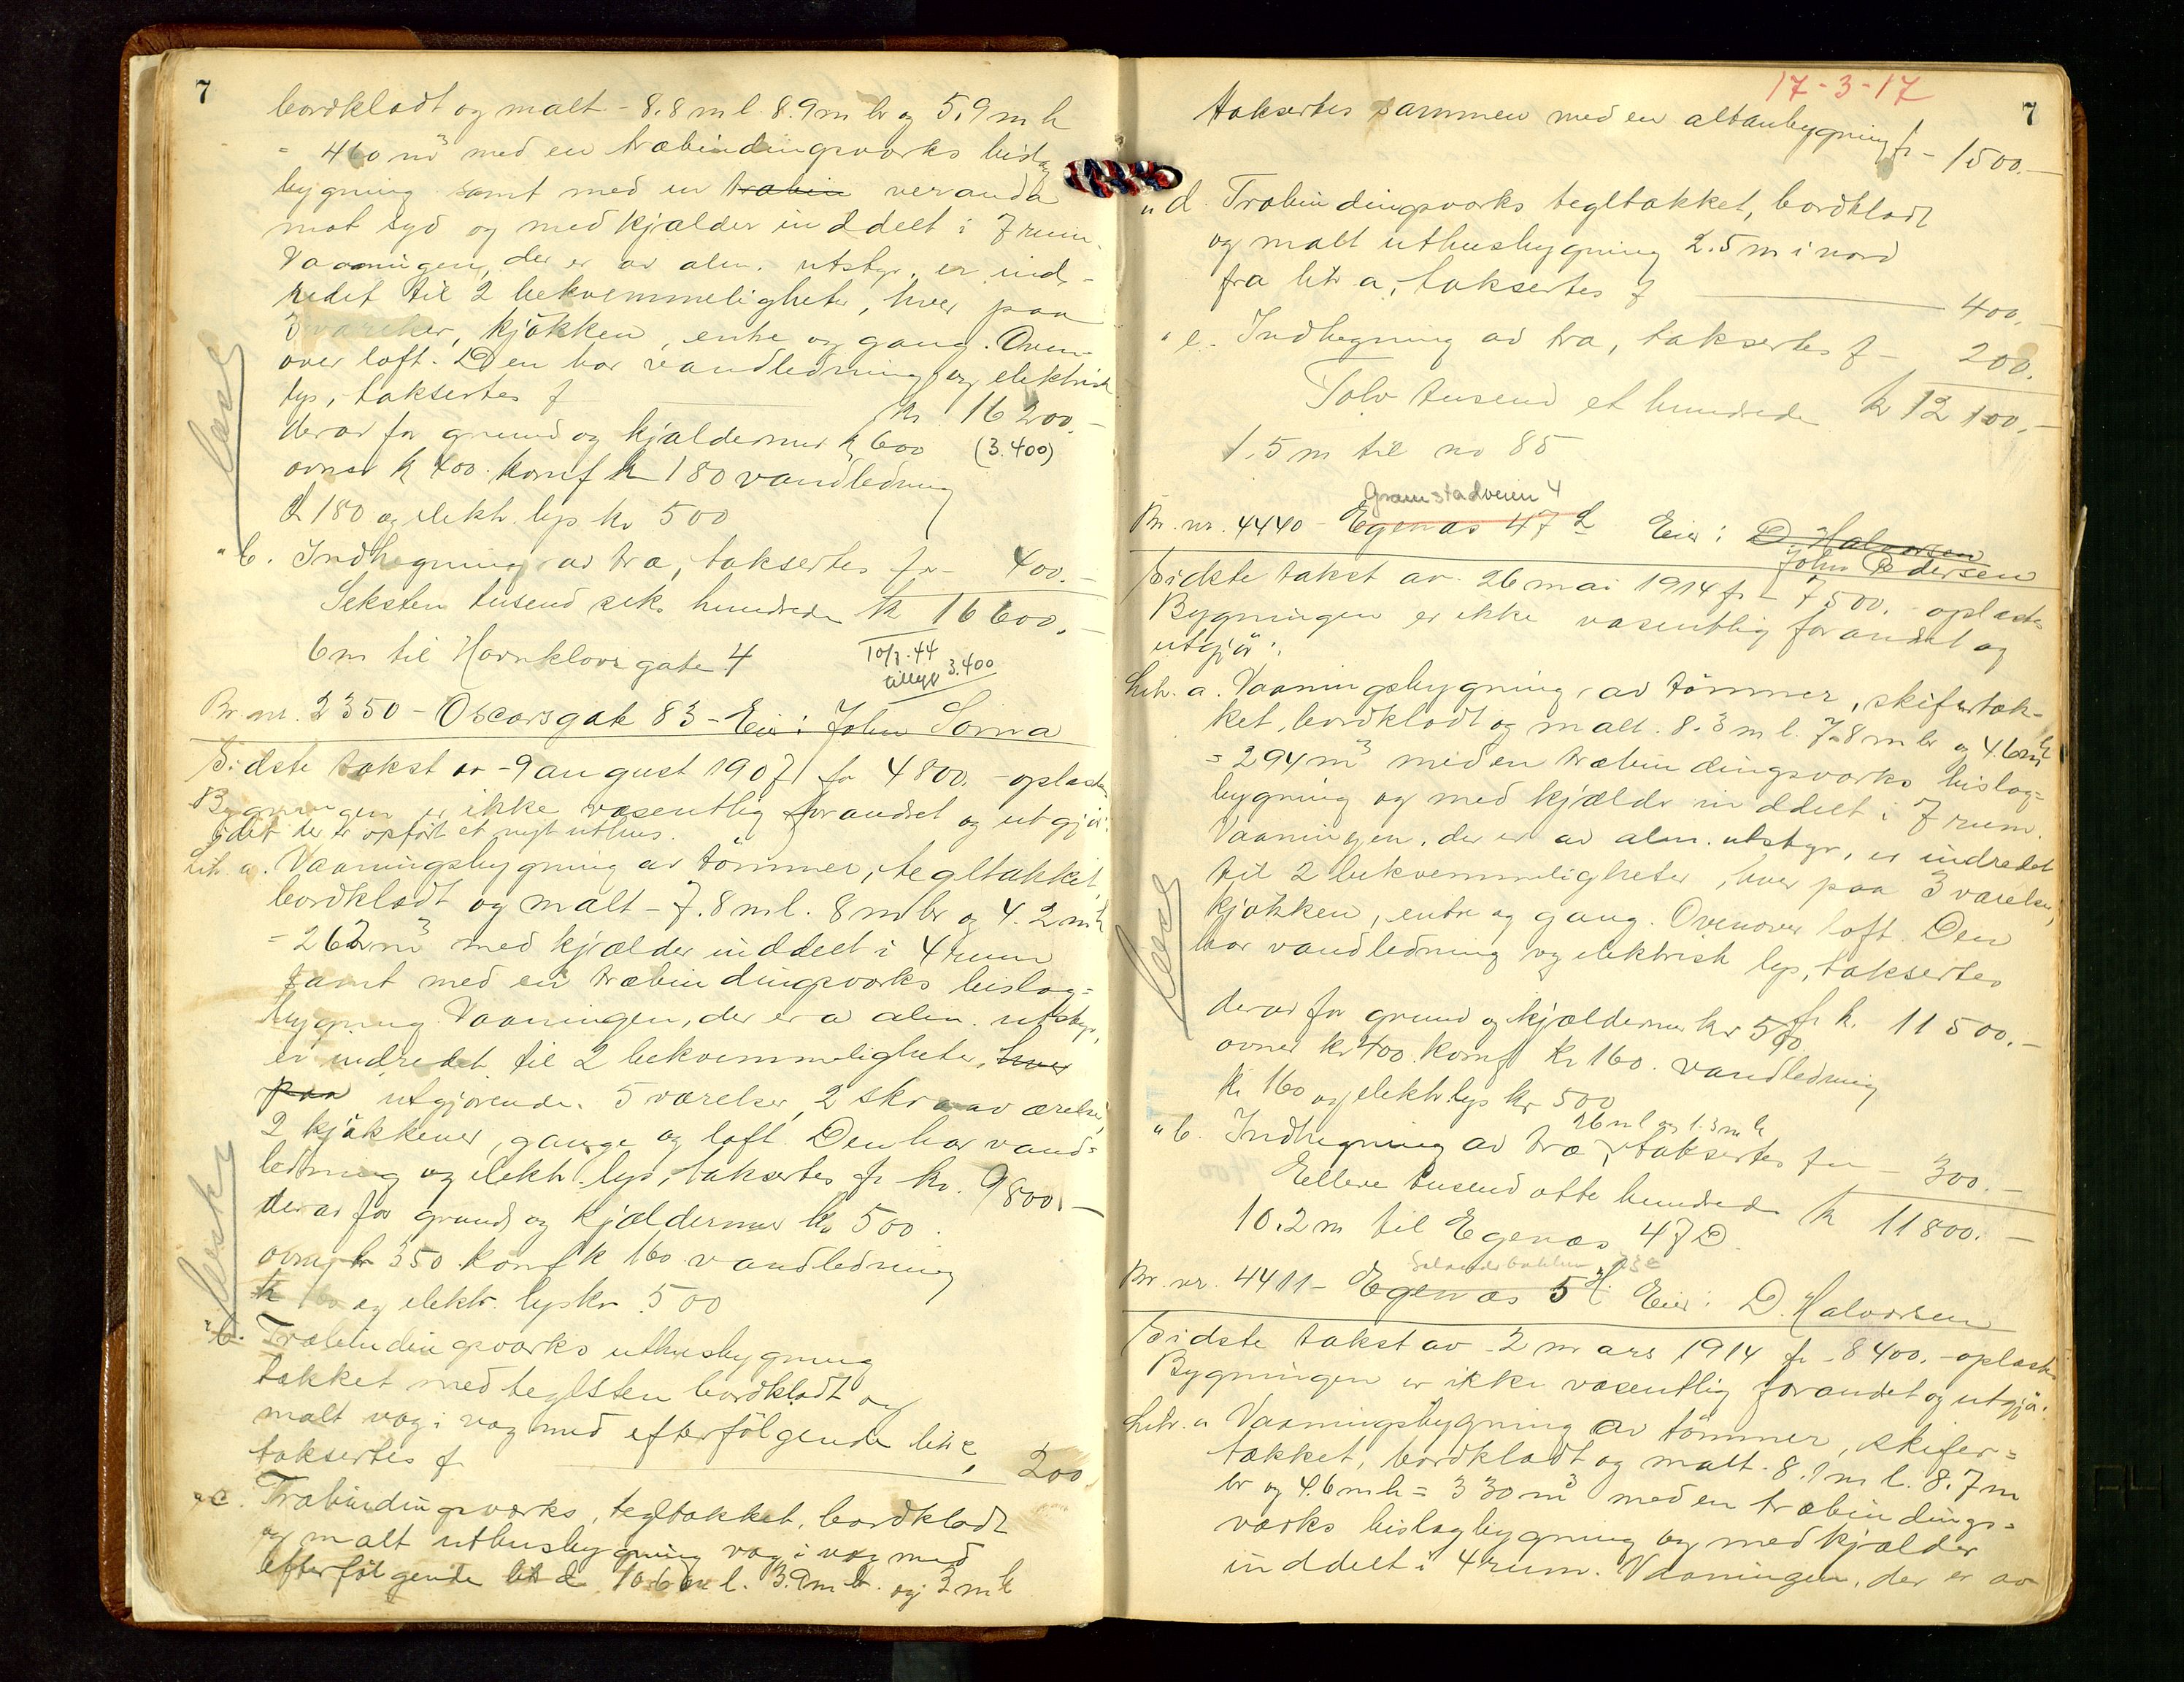 7
bordklædt og malt - 8.8 m l. 8.9 m br og 5.9 m h
= 460 m³ med en træbindingsværks bislag
bygning samt med en træbin veranda
mot syd og med kjælder inddelt i 7 rum.
Vaaningen, der er av alm. utstyr, er ind-
redet til 2 bekvemmeligheter, hver paa
3 værelser, kjøkken, entre og gang. Oven-
over loft. Den har vandledning og elektrisk
lys, taksertes f kr 16 200.-
derav for grund og kjældermur kr 600 (3.400)
ovner kr 400. komf kr 180 vandledning
kr 180 og elektr. lys kr 500
" b. Indhegning av træ, taksertes for - 400.-
Seksten tusend seks hundrede kr 16 600.-
6 m til Havnkloss gate 4
10/3.44
tillegg 3.400
Br. nr. 2350 - Oscarsgate 83 - Eier: John Sømna
Sidste takst av - 9 august 1907 for 4800. - oplæstes
Bygningen er ikke væsentlig forandret og utgjør:
idet der er opført et nyt uthus.
Litr. a. Vaaningsbygning av tømmer, tegltækket,
bordklædt og malt - 7.8 m l. 8 m br og 4.2 m h
= 262 m³ med kjælder inddelt i 4 rum
samt med en træbindingsværks bislag=
bygning. Vaaningen, der er a alm. utstyr,
er indredet til 2 bekvemmeligheter, hver
paa utgjørende. 5 værelser, 2 skraaværelser,
2 kjøkkener, gange og loft. Den har vand=
ledning og elektr. lys, taksertes fr kr. 9800.-
derav for grund og kjældermur kr 500.
ovner kr 350 komf kr 160 vandledning
kr 160 og elektr. lys kr 500
" b. Træbindingsværks uthusbygning
tækket med teglsten bordklædt og
malt væg i væg med efterfølgende litr c,
taksertes f 200
" c. Træbindingsværks, tegltækket, bordklædt
og malt uthusbygning væg i væg med
efterfølgende litr d. 10.6 m l. 3.9 m br. og 3 m h
læst
læst
17-3-17
7
taksertes sammen med en altanbygning fr - 1500.-
" d. Træbindingsværks tegltækket, bordklædt
og malt uthusbygning 2.5 m i nord
fra litr a, taksertes f 400.-
" e. Indhegning av træ, taksertes f - 200.
Tolv tusend et hundrede kr 12 100.-
1.5 m til no 85
Gramstadveien 4
Br. nr. 4440 - Egenæs 47 L Eier: D. Halvorsen
John Pedersen
Sidste takst av 26 mai 1914 fr - 7500. - oplæstes
Bygningen er ikke væsentlig forandret og
utgjør:
Litr. a. Vaaningsbygning av tømmer, skifertæk-
ket, bordklædt og malt. 8.3 m l. 7.8 m br og 4.6 m h
= 294 m³ med en træbindingsværks bislag=
bygning og med kjælder inddelt i 7 rum.
Vaaningen, der er av alm. utstyr, er indredet
til 2 bekvemmeligheter, hver paa 3 værelser,
kjøkken, entre og gang. Ovenover loft. Den
har vandledning og elektrisk lys, taksertes
fr kr. 11 500.-
derav for grund og kjældermur kr 500
ovner kr 400. komf kr 160. vandledning
kr 160 og elektr lys kr 500
26 m l og 1.3 m h
" b. Indhegning av træ, taksertes for - 300.-
Elleve tusend otte hundrede kr 11800.-
10.2 m til Egenæs 47 D
23 c
Br. nr. 4411 - Egenæs 5 H Eier: D. Halvorsen
Sidste takst av - 2 mars 1914 fr - 8400. - oplæstes
Bygningen er ikke væsentlig forandet og utgjør:
Litr. a Vaaningsbygning av tømmer, skifer=
tækket, bordklædt og malt. 8.1 m l. 8.7 m
br og 4.6 m h = 330 m³ med en træbindings=
værks bislagbygning og med kjælder
inddelt i 4 rum. Vaaningen, der er av
læst